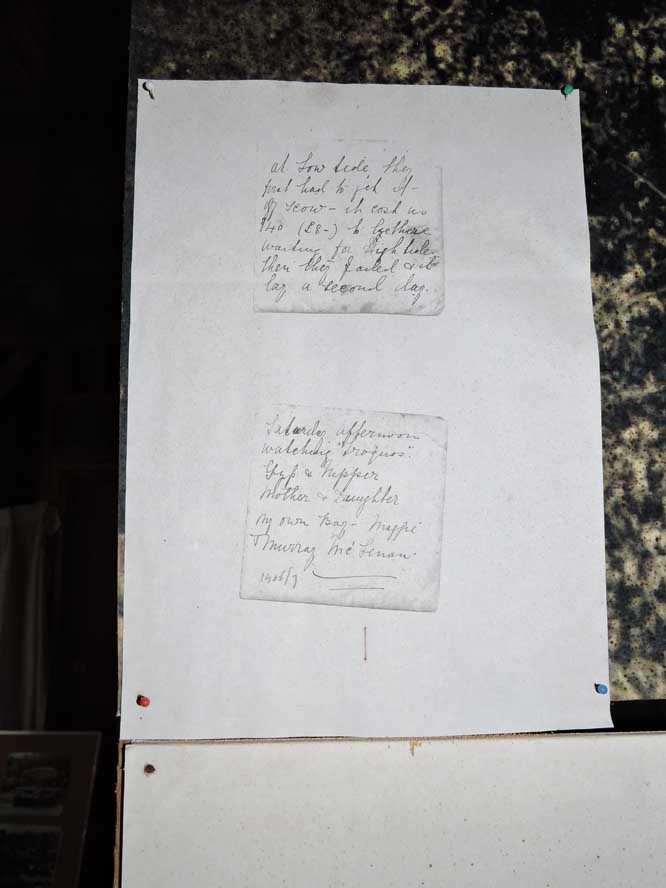 at Low tide they
first had to get it
off scow - it cost us
$40 (£8-) to be there
waiting for High tide
then they failed & it
lay a second day.
Saturday afternoon
watching "Iroquois".
Gyp & Nipper
Mother & Daughter
My own Bay - Magpie
& Murray Mc Lenan.